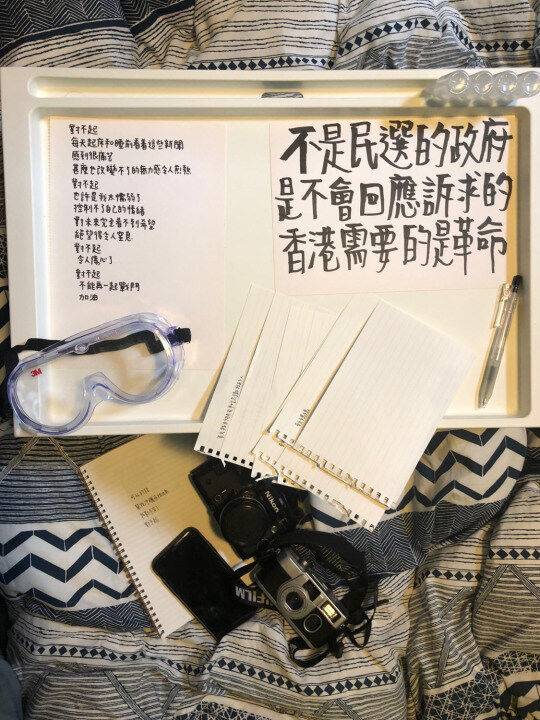 對不起
每天起床和睡前看着這些新聞
感到很痛苦
甚麼也改變不了的無力感令人煎熬
對不起
也許是我太懦弱了
控制不了自己的情緒
對未來完全看不到希望
絕望得令人窒息
對不起
令人傷心了
對不起
不能再一起戰鬥
加油
不是民選的政府
是不會回應訴求的
香港需要的是革命
3M
Nikon
FILM